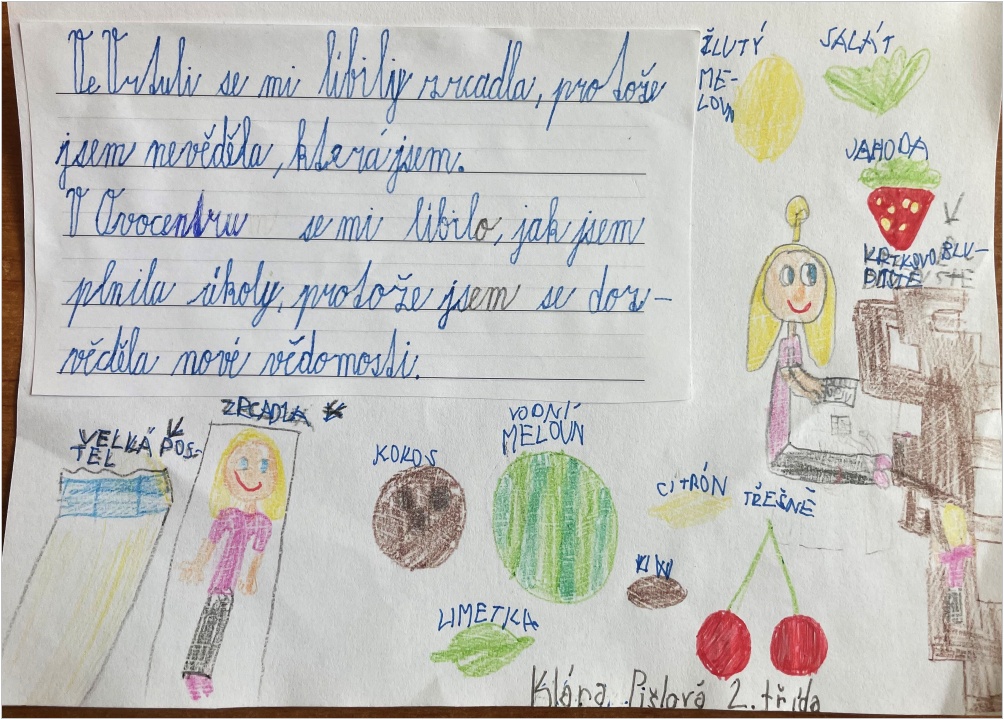 Ve Vrtuli se mi líbily zrcadla, protože
jsem nevěděla, která jsem.
V Ovocentru se mi líbilo, jak jsem
plnila úkoly, protože jsem se doz-
věděla nové vědomosti.
ŽLUTÝ
ME-
LOUN
SALÁT
JAHODA
KRTKOVO BLU-
DIŠTĚ
ZRCADLA
VELKÁ POS-
TEL
KOKOS
VODNÍ
MELOUN
CITRÓN
TŘEŠNĚ
KIWI
LIMETKA
Klára Pišlová 2. třída